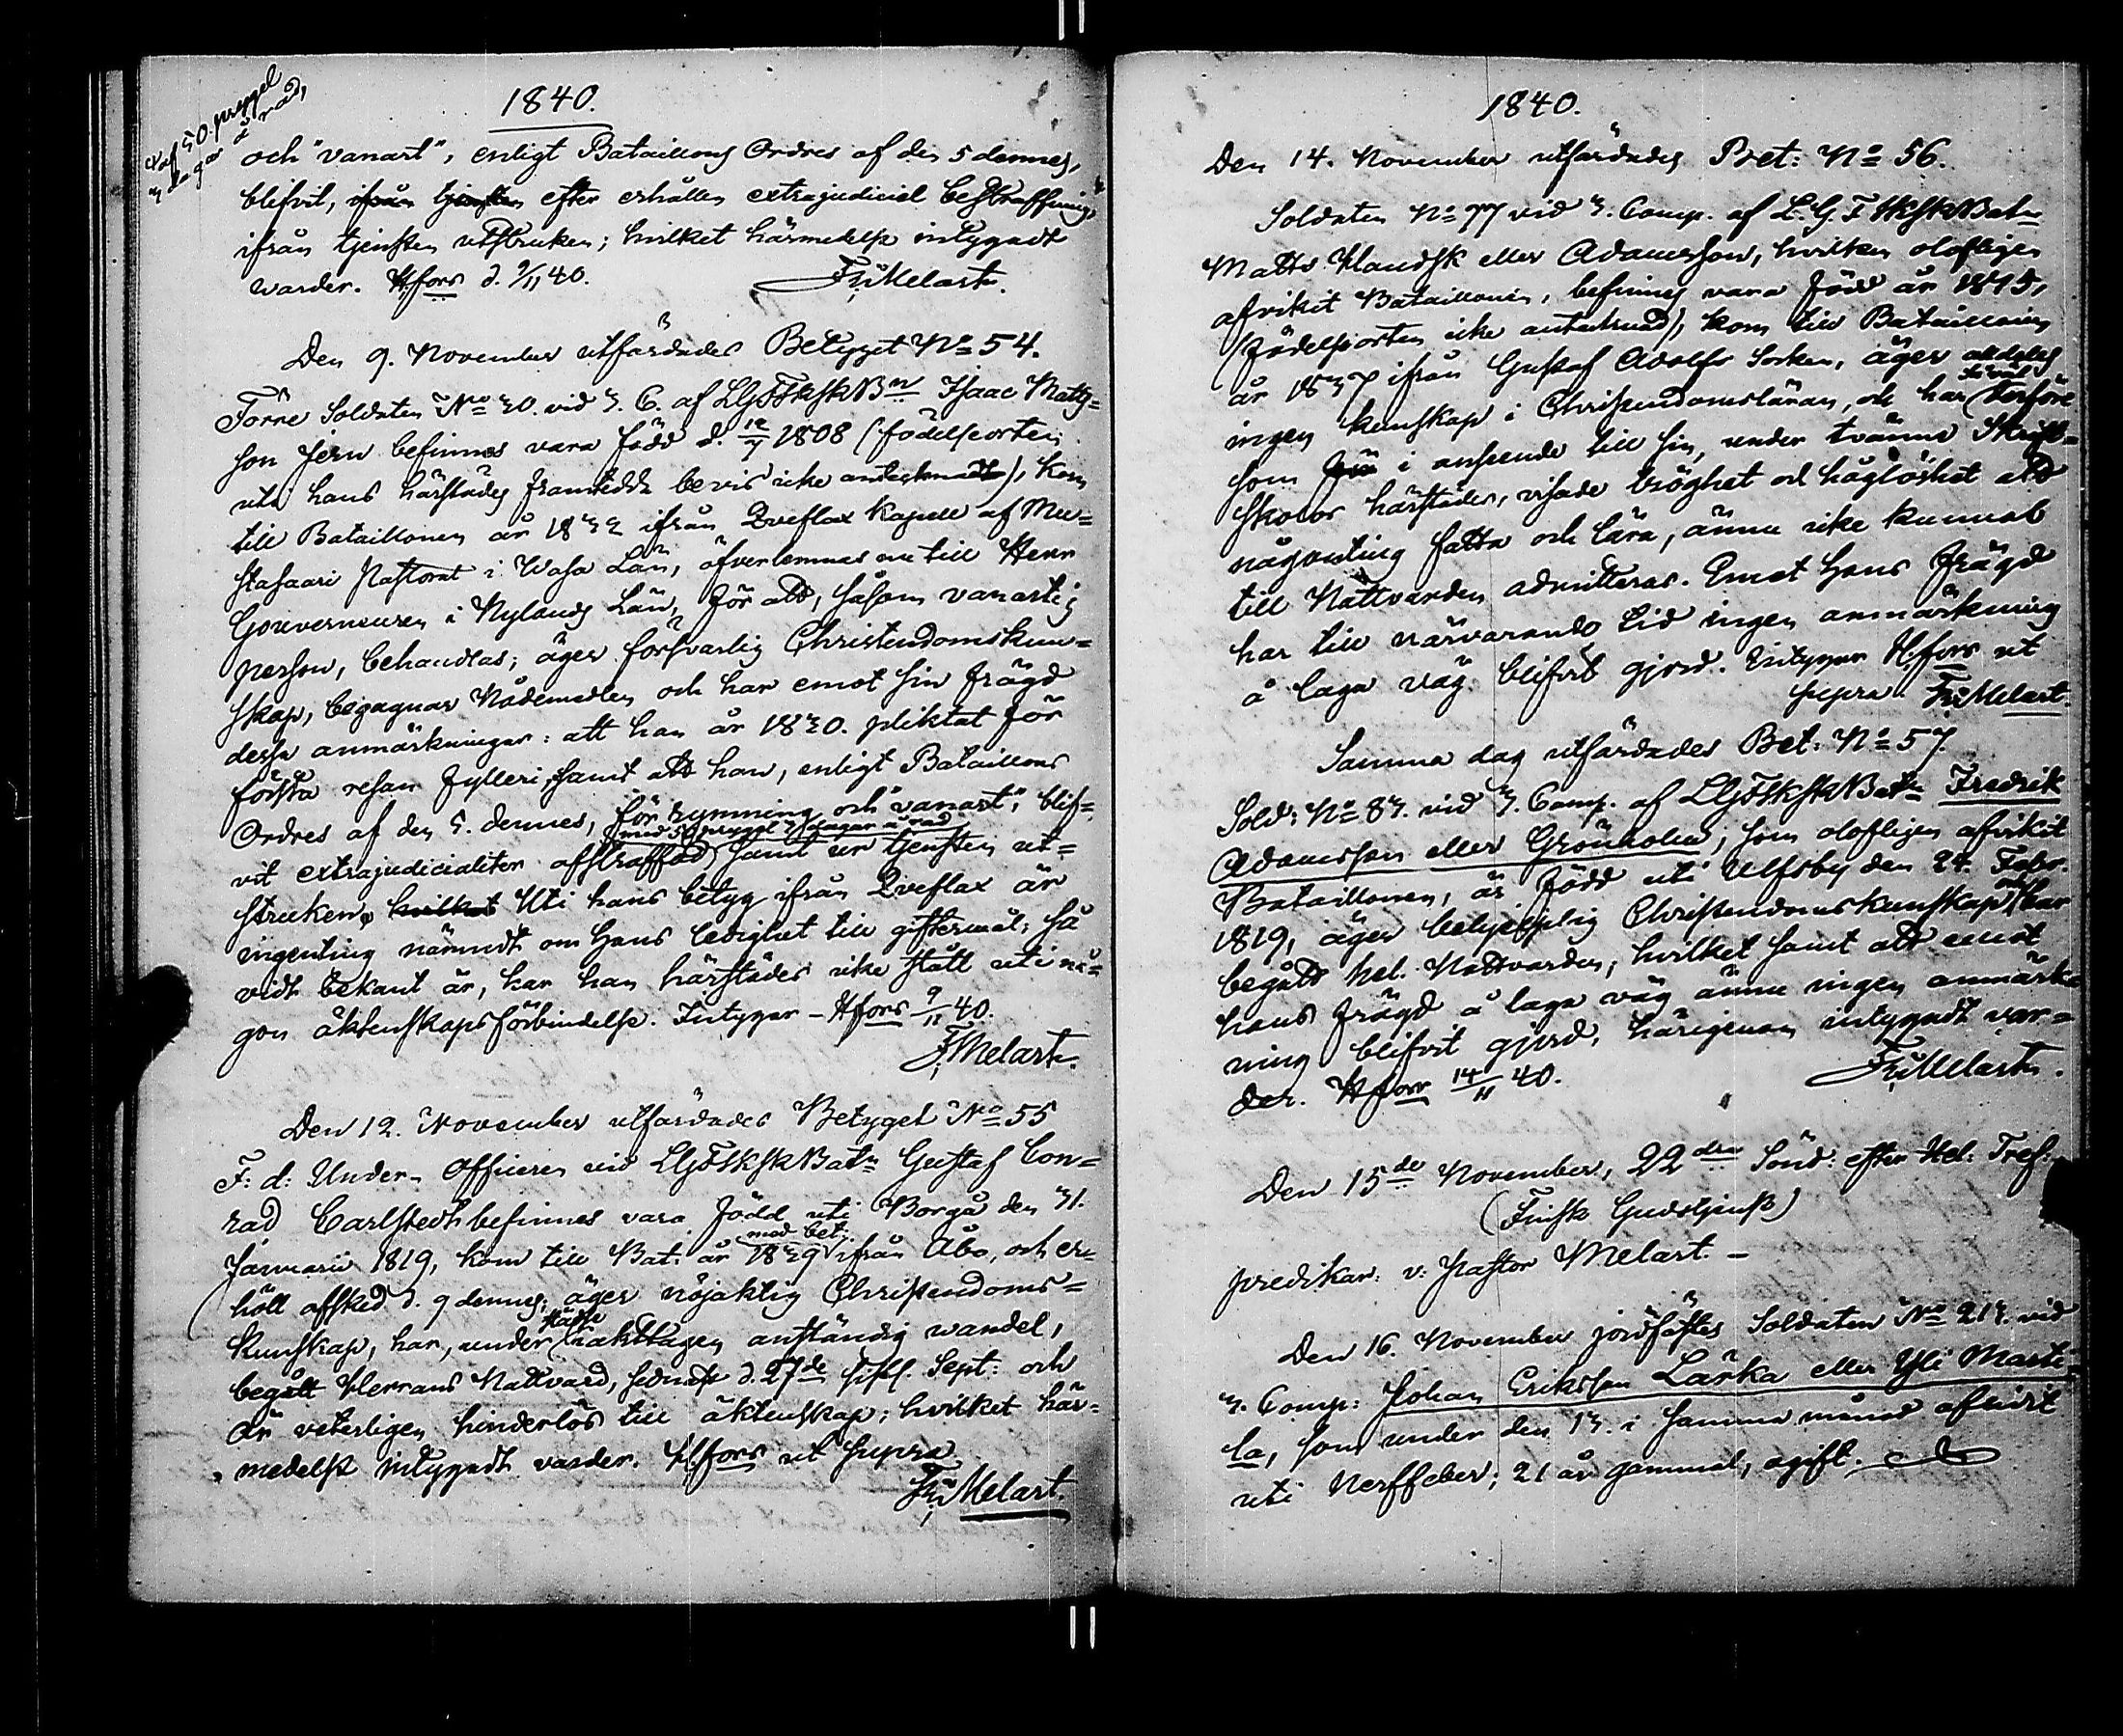 1840.
af 50 prygel
3 dagar å rad,
och "vanart", enligt Bataillons Ordres af den 5 dennes,
blifvit, ifrån tjensten efter erhållen extrajudiciel bestraffning
ifrån tjensten utstruken; hvilket härmedelst intygadt
warder. H:fors d. 9/11 40.
Fr: Melart.
Den 9. November utfärdades Betyget No 54.
Förre Soldaten No 30. vid 3. C. af LGFSkskBn Isaac Matts=
son Jern befinnes vara född d. 12/7 1808 (födelseorten
uti hans härstädes framtedde bevis icke antecknadt), kom
till Bataillonen år 1832 ifrån Qveflax Kapell af Mu=
stasaari Pastorat i Wasa Län, öfverlemnas nu till Herr
Gouverneuren i Nylands Län, för att, såsom vanartig
person, behandlas; äger försvarlig Christendomskun=
skap, begagnar Nådemedlen och har emot sin frägd
dessa anmärkningar: att han år 1830. pliktat för
första resan fylleri, samt att han, enligt Bataillons
Ordres af den 5. dennes, för rymning och "vanart", blif=
med 50 prygel 3 dagar å rad
vit extrajudicialiter afstraffad samt ur tjensten ut=
struken, hvilket Uti hans betyg ifrån Qveflax är
ingenting nämndt om hans ledighet till giftermål; så
vidt bekant är, har han härstädes icke stått uti nå=
gon äktenskapsförbindelse. Intygar - H:fors 9/11 40.
F: Melart.
Den 12. November utfärdades Betyget No 55
F: d: Under-Officeren vid LGFSkskBatn Gustaf Con=
rad Carlstedt befinnes vara född uti Borgå den 31.
med bet.
Januarii 1819, kom till Bat: år 1839 ifrån Åbo, och er=
höll afsked d. 9 dennes; äger nöjaktig Christendoms=
kunskap, har, under iakttagen anständig wandel,
begått Herrans Nattvard, sednast d. 27de sistl. Sept: och
är veterligen hinderlös till äktenskap; hvilket här=
medelst intygadt varder. H:fors ut supra
Fr: Melart.
1840.
Den 14. November utfärdades Bet: No 56.
Soldaten No 77 vid 3. Comp. af L.G.F.SkskBatn
Matts Handsk eller Adamsson, hvilken olofligen
afvikit Bataillonen, befinnes vara född år 1815,
(födelseorten icke antecknad), kom till Bataillonen
år 1837 ifrån Gustaf Adolfs Socken, äger alldeles
ingen kunskap i Christendomsläran, och har
som i anseende till sin, under tvänne Skrift=
skolor härstädes, visade tröghet och håglöshet att
någonting fatta och lära, ännu icke kunnat
till Nattvarden admitteras. Emot hans frägd
har till närvarande tid ingen anmärkning
å laga väg blifvit gjord. Intygar H:fors ut
supra. Fr: Melart.
Samma dag utfärdades Bet: No 57.
Sold: No 83. vid 3. Comp. af LGFSkskBatn Fredrik
Adamsson eller Grönholm, som olofligen afvikit
Bataillonen, är född uti Ulfsby den 24. Febr.
1819, äger behjelplig Christendomskunskap, har
begått hel. Nattvarden; hvilket samt att emot
hans frägd å laga väg ännu ingen anmärk=
ning blifvit gjord, härigenom intygadt var=
der. H:fors 14/11 40.
Fr: Melart.
Den 15de November, 22den Sönd: efter Hel: Tref:
(Finsk Gudstjenst)
predikar: v: Pastor Melart. -
Den 16. November jordfästes Soldaten No 213. vid
3. Comp: Johan Eriksson Lärka eller Yli Marti=
la, som under den 13. i samma månad aflidit
uti Nerffeber; 21 år gammal, ogift.